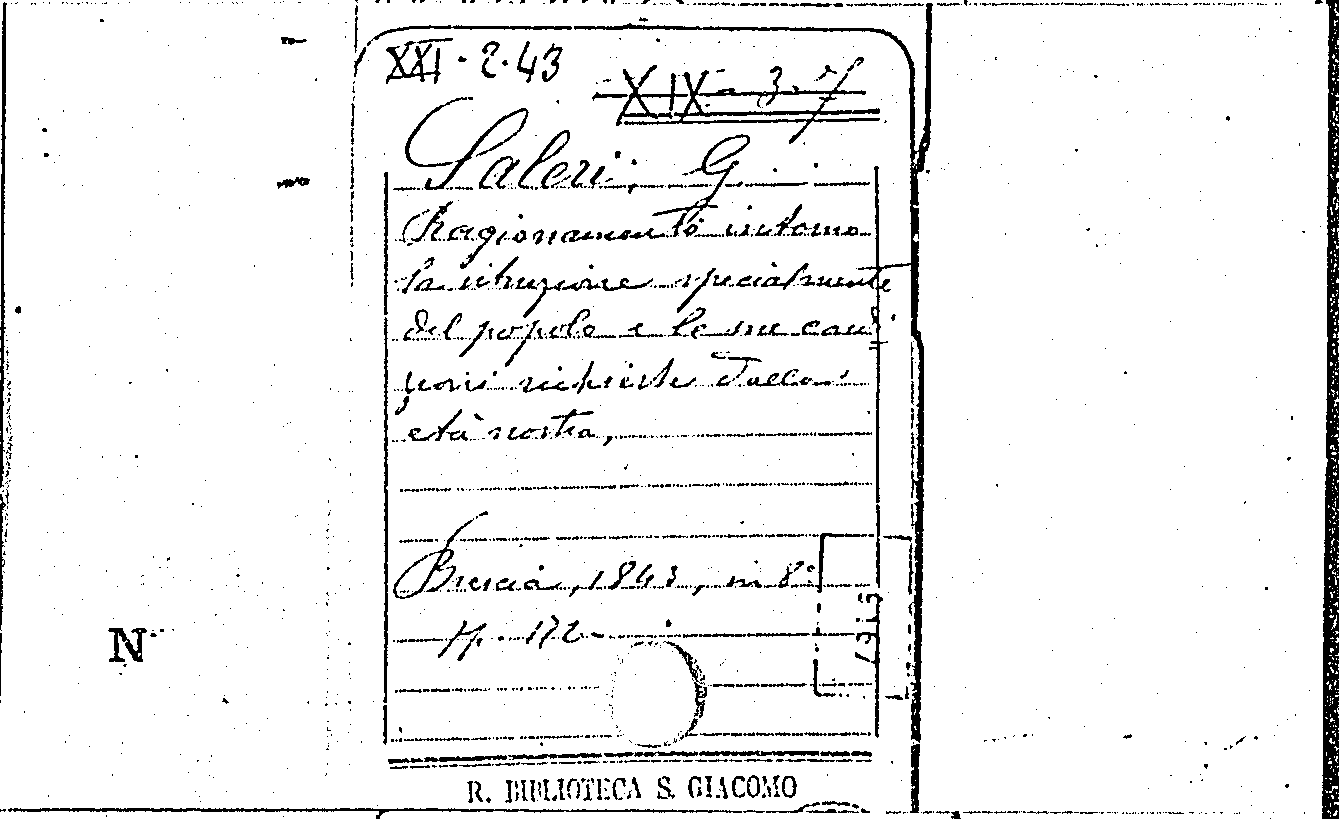 XXI. 2. 43
XIX - 3. 7
Saleri, G.
Ragionamento intorno
la istruzione specialmente
del popolo e le sue condi
zioni richieste dalla
età nostra,
Brescia, 1843, in 8°
pp. 172
N
R. BIBLIOTECA S. GIACOMO